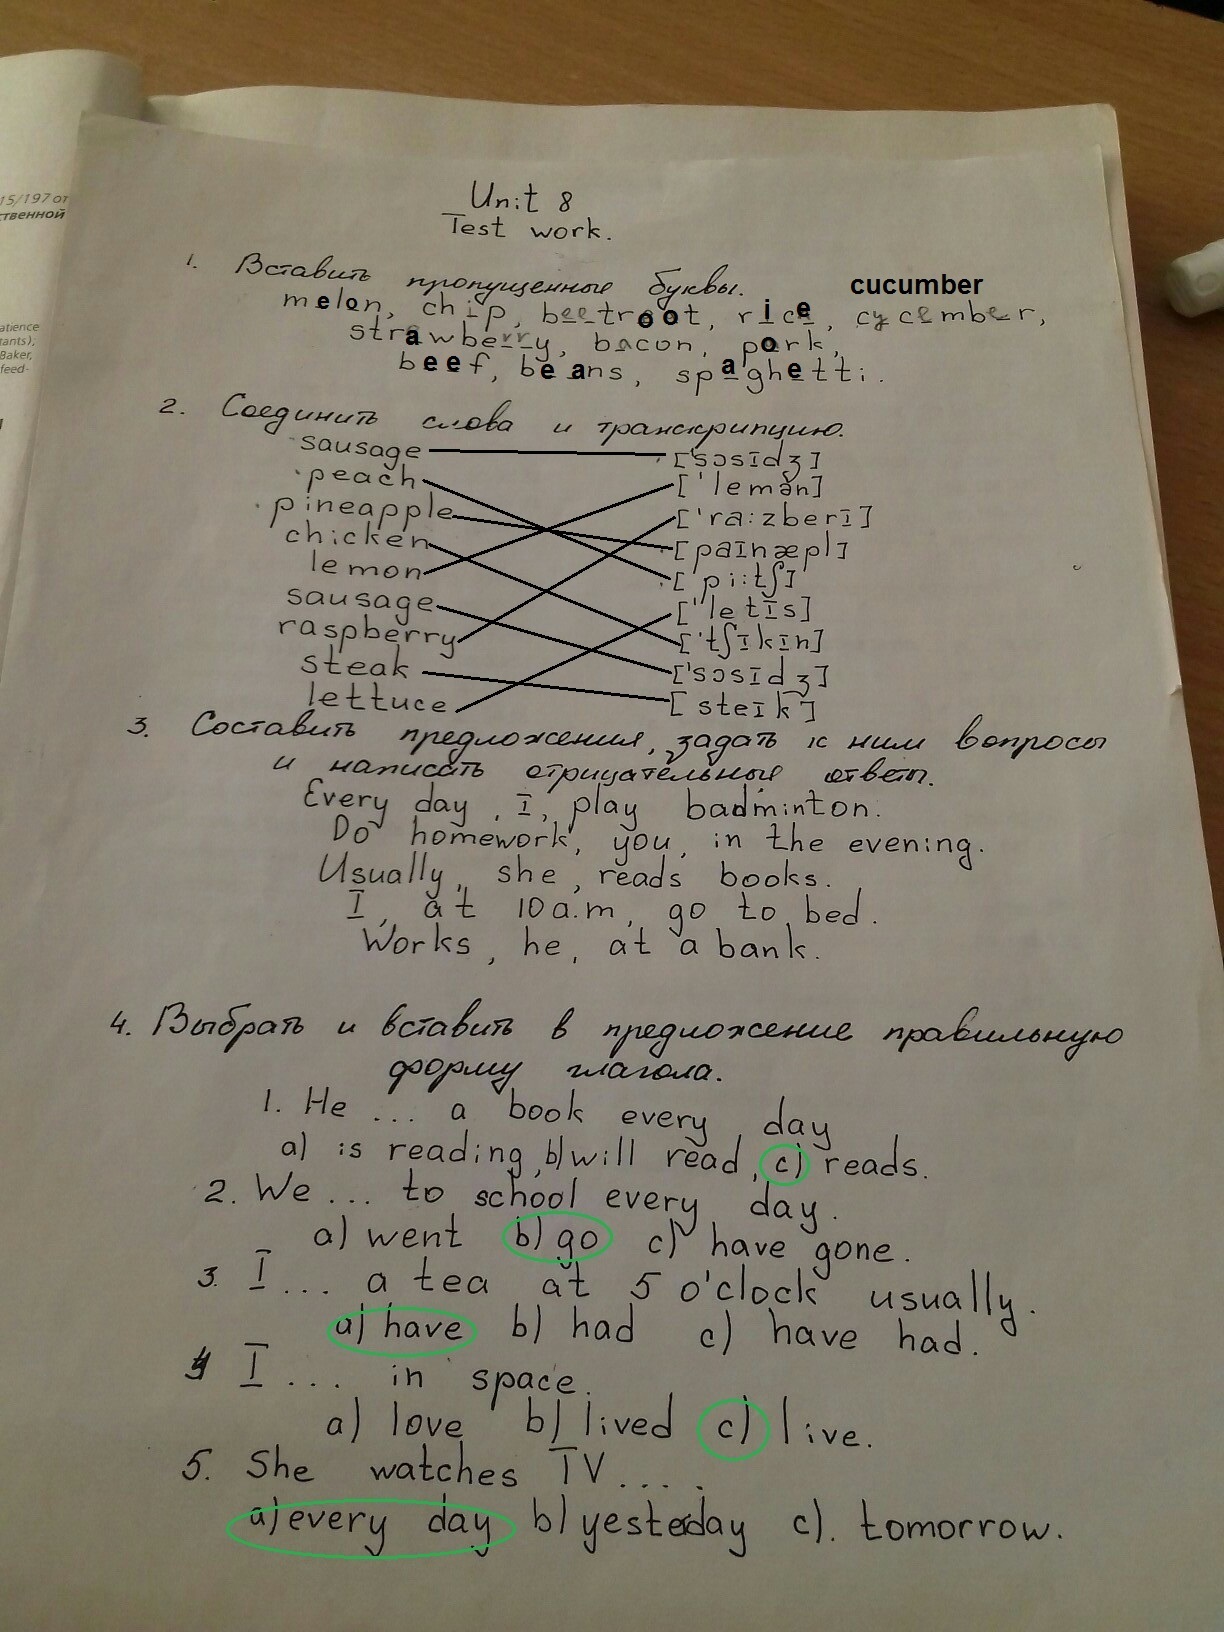 15/197 от
ственной
atience
tants);
Baker,
feed-
Unit 8
Test work.
1. Вставить пропущенные буквы.
cucumber
melon, chip, beetroot, rice, cycember,
strawberry, bacon, pork,
beef, beans, spaghetti.
2. Соединить слова и транскрипцию.
sausage ['sɔsɪdʒ]
peach ['lemən]
pineapple ['ra:zberɪ]
chicken [paɪnæpl]
lemon ['pi:tʃ]
sausage ['letɪs]
raspberry ['tʃɪkɪn]
steak ['sɔsɪdʒ]
lettuce [steɪk]
3. Составить предложения, задать к ним вопросы
и написать отрицательные ответы.
Every day, I, play badminton.
Do homework, you, in the evening.
Usually, she, reads books.
I, at 10 a.m, go to bed.
Works, he, at a bank.
4. Выбрать и вставить в предложение правильную
форму глагола.
1. He ... a book every day
a) is reading, b) will read, c) reads.
2. We ... to school every day.
a) went b) go c) have gone.
3. I ... a tea at 5 o'clock usually.
a) have b) had c) have had.
4 I ... in space.
a) love b) lived c) live.
5. She watches TV ....
a) every day b) yesterday c). tomorrow.